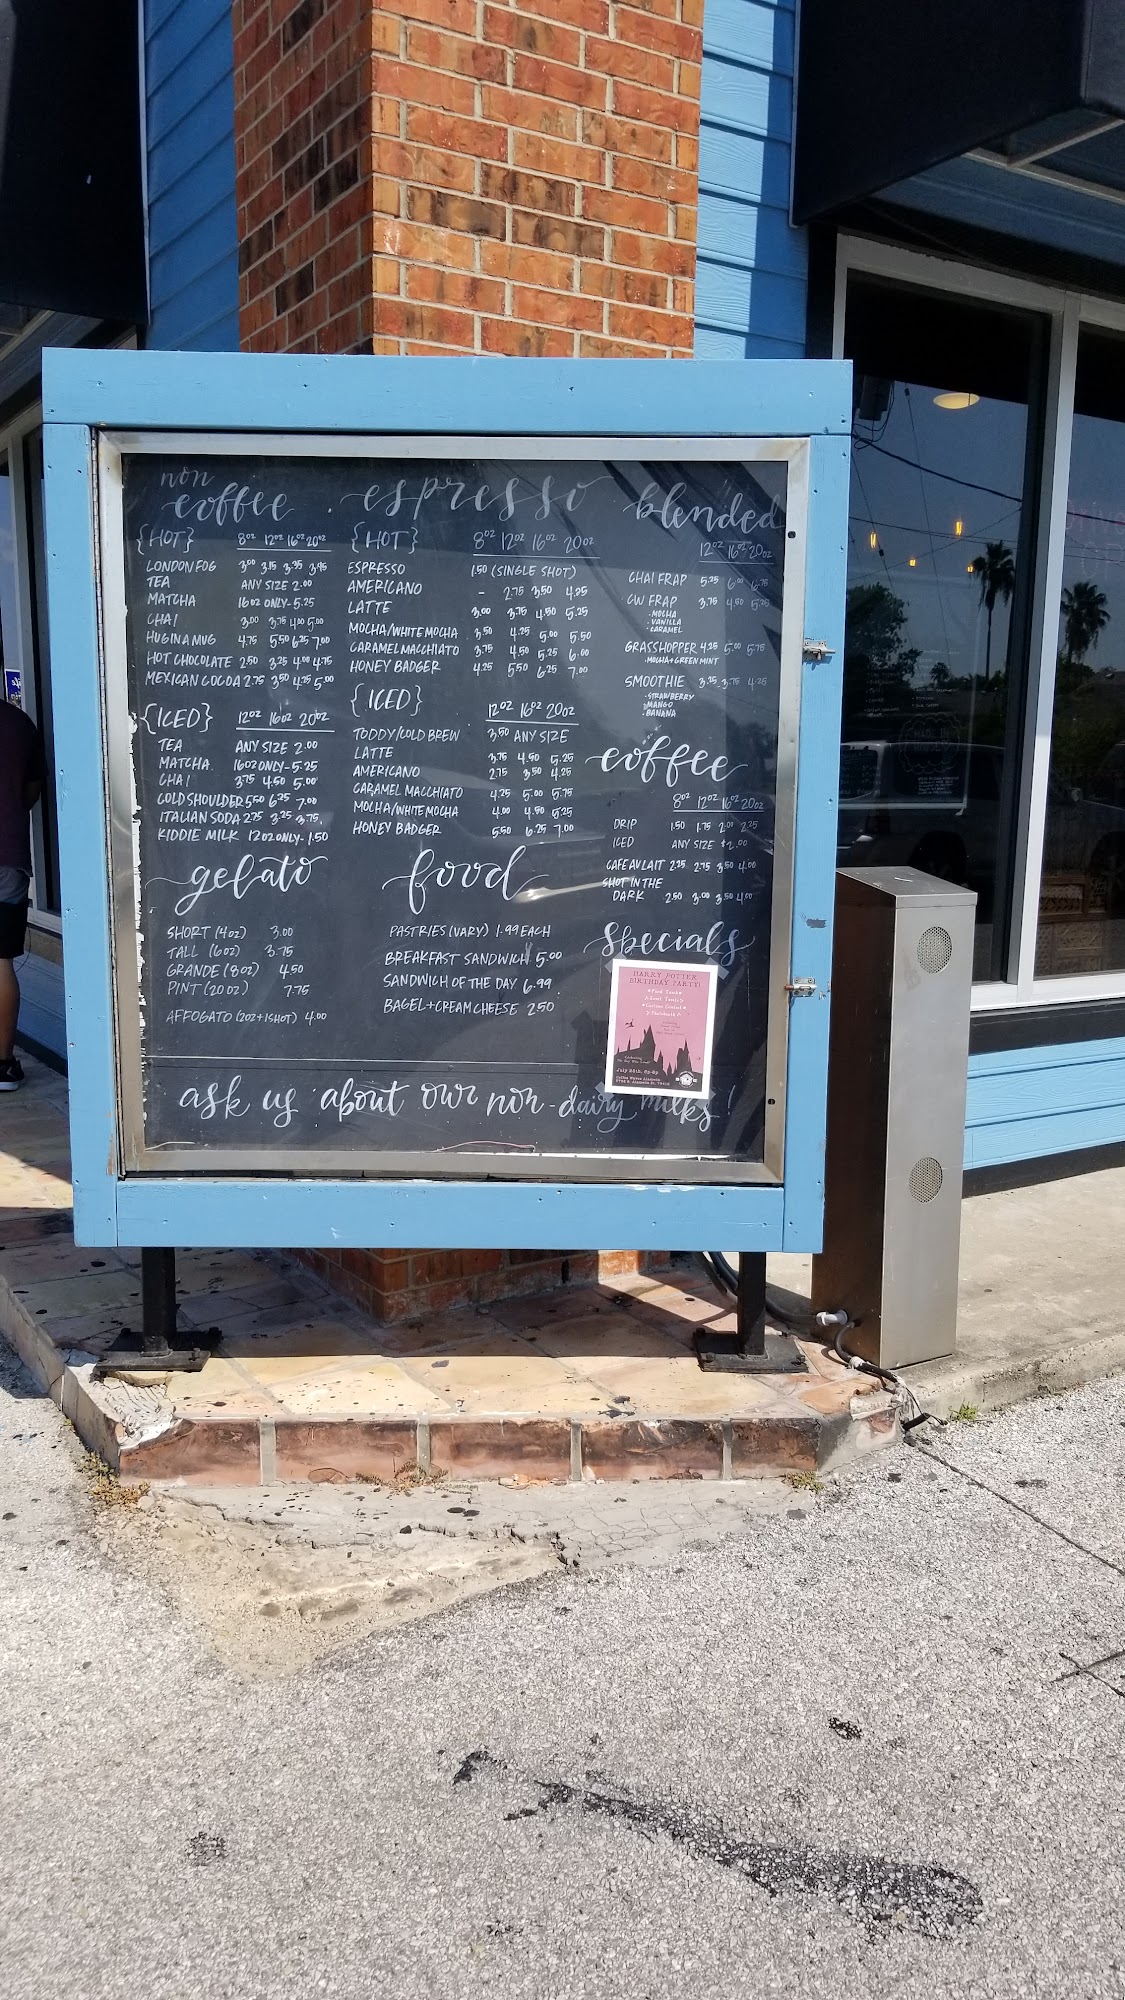 non
coffee
{HOT} 8oz 12oz 16oz 20oz
LONDON FOG 3.00 3.15 3.35 3.45
TEA ANY SIZE 2.00
MATCHA 16oz ONLY - 5.25
CHAI 3.00 3.75 4.00 5.00
HUG IN A MUG 4.75 5.50 6.25 7.00
HOT CHOCOLATE 2.50 3.25 4.00 4.75
MEXICAN COCOA 2.75 3.50 4.25 5.00
{ICED} 12oz 16oz 20oz
TEA ANY SIZE 2.00
MATCHA 16oz ONLY - 5.25
CHAI 3.75 4.50 5.00
COLD SHOULDER 5.50 6.25 7.00
ITALIAN SODA 2.75 3.25 3.75
KIDDIE MILK 12oz ONLY - 1.50
gelato
SHORT (4oz) 3.00
TALL (6oz) 3.75
GRANDE (8oz) 4.50
PINT (20oz) 7.75
AFFOGATO (2oz + 1 SHOT) 4.00
espresso
{HOT} 8oz 12oz 16oz 20oz
ESPRESSO 1.50 (SINGLE SHOT)
AMERICANO - 2.75 3.50 4.25
LATTE 3.00 3.75 4.50 5.25
MOCHA/WHITE MOCHA 3.50 4.25 5.00 5.50
CARAMEL MACCHIATO 3.75 4.50 5.25 6.00
HONEY BADGER 4.25 5.50 6.25 7.00
{ICED} 12oz 16oz 20oz
TODDY/COLD BREW 3.50 ANY SIZE
LATTE 3.75 4.50 5.25
AMERICANO 2.75 3.50 4.25
CARAMEL MACCHIATO 4.25 5.00 5.75
MOCHA/WHITE MOCHA 4.00 4.50 5.25
HONEY BADGER 5.50 6.25 7.00
food
PASTRIES (VARY) 1.99 EACH
BREAKFAST SANDWICH 5.00
SANDWICH OF THE DAY 6.99
BAGEL + CREAM CHEESE 2.50
blended
12oz 16oz 20oz
CHAI FRAP 5.25 6.00 6.75
CW FRAP 3.75 4.50 5.25
- MOCHA
- VANILLA
- CARAMEL
GRASSHOPPER 4.25 5.00 5.75
- MOCHA + GREEN MINT
SMOOTHIE 3.25 3.75 4.25
- STRAWBERRY
- MANGO
- BANANA
coffee
8oz 12oz 16oz 20oz
DRIP 1.50 1.75 2.00 2.25
ICED ANY SIZE $2.00
CAFE AU LAIT 2.25 2.75 3.50 4.00
SHOT IN THE
DARK 2.50 3.00 3.50 4.00
specials
HARRY POTTER
BIRTHDAY PARTY!
July 28th, 6p-8p
ask us about our non-dairy milks!